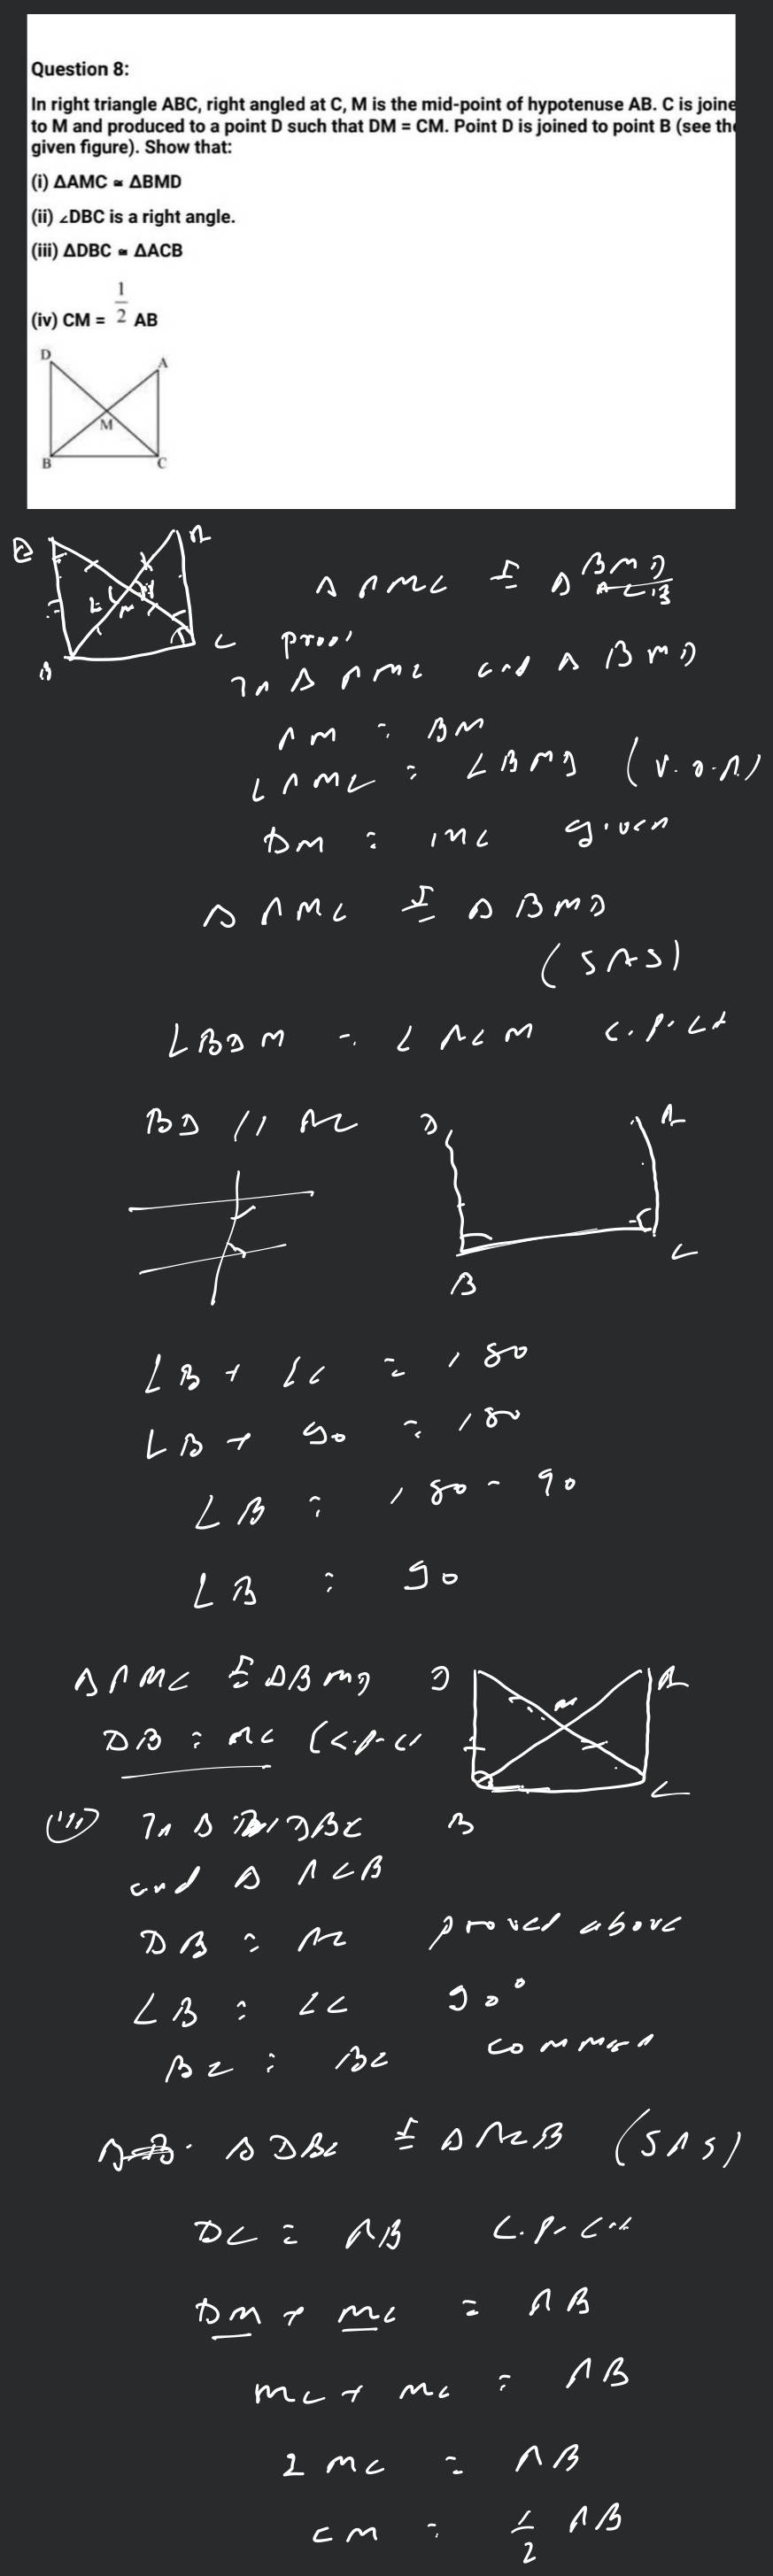 Question 8:
In right triangle ABC, right angled at C, M is the mid-point of hypotenuse AB. C is joine
to M and produced to a point D such that DM = CM. Point D is joined to point B (see the
given figure). Show that:
(i) ΔAMC ≅ ΔBMD
(ii) ∠DBC is a right angle.
(iii) ΔDBC ≅ ΔACB
(iv) CM = 1/2 AB
D A
M
B C
D A
M
B C
Δ AMC ≅ Δ BMD
proof
In Δ AMC and Δ BMD
AM = BM
∠AMC = ∠BMD (V.O.A)
DM = MC given
Δ AMC ≅ Δ BMD
(SAS)
∠BDM = ∠ACM C.P.Ct
BD // AC
D A
B C
∠B + ∠C = 180
∠B + 90 = 180
∠B = 180 - 90
∠B = 90
Δ AMC ≅ ΔBMD
D M A
DB = AC (C.P.C
B C
(iii) In Δ DBC
and Δ ACB
DB = AC proved above
∠B = ∠C 90°
BC = BC common
Δ DBC ≅ Δ ACB (SAS)
DC = AB C.P.C.t
DM + MC = AB
MC + MC = AB
2 MC = AB
CM = 1/2 AB